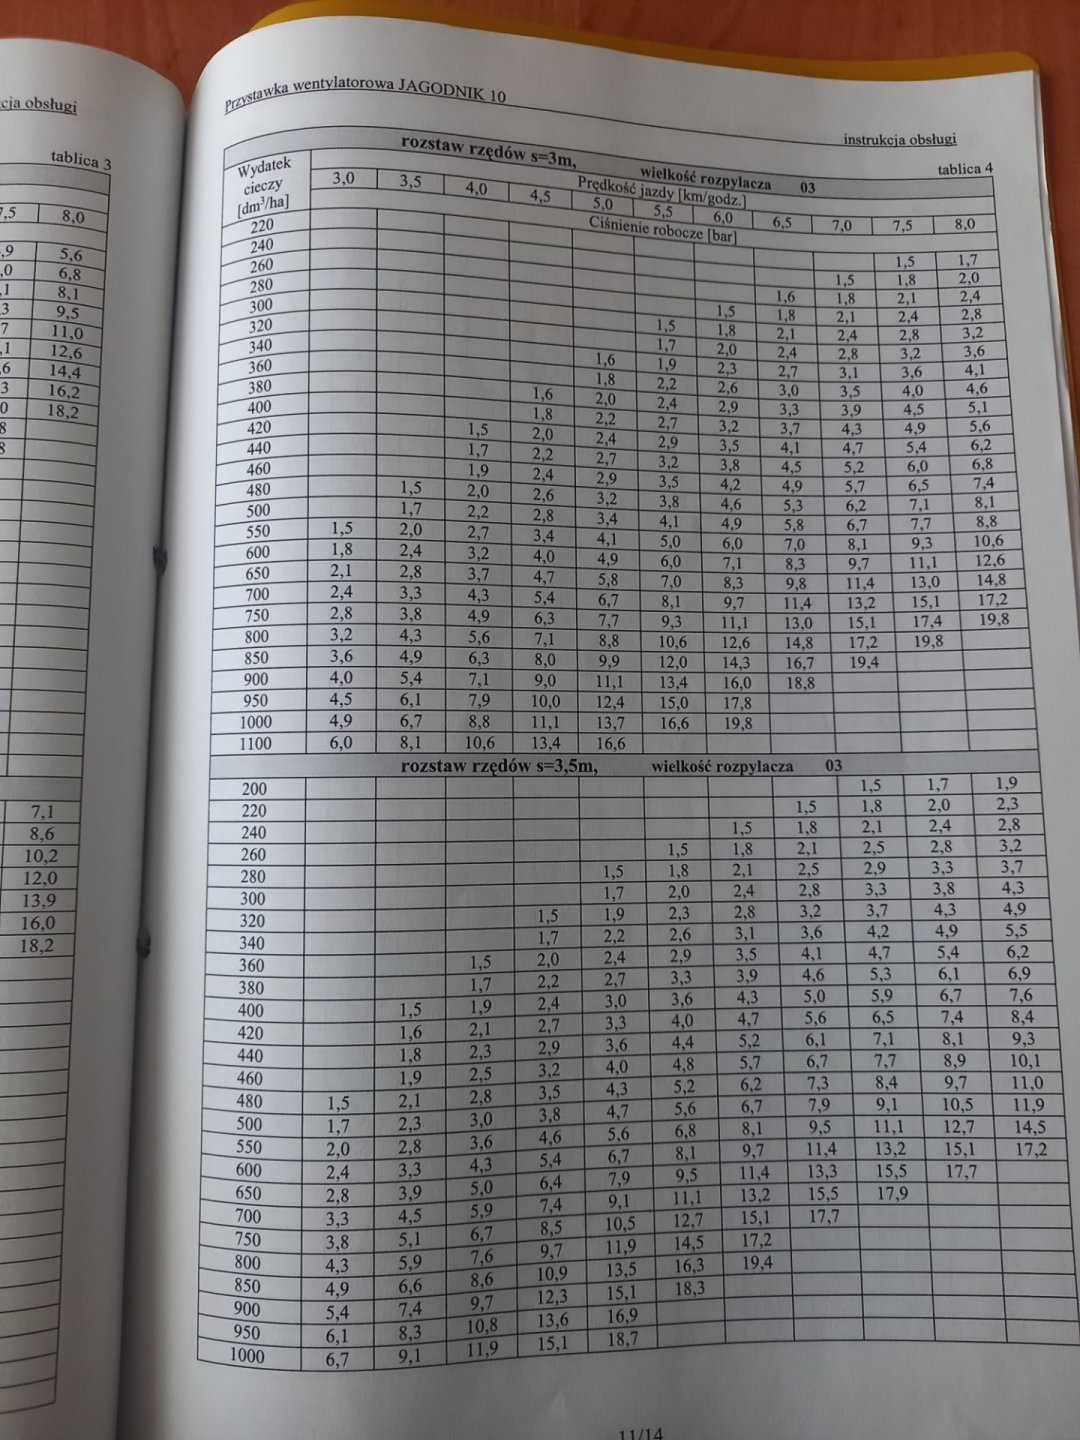 cja obsługi
tablica 3
7,5 8,0
,9 5,6
,0 6,8
,1 8,1
3 9,5
7 11,0
,1 12,6
6 14,4
3 16,2
0 18,2
8
8
7,1
8,6
10,2
12,0
13,9
16,0
18,2
Przystawka wentylatorowa JAGODNIK 10
instrukcja obsługi
tablica 4
rozstaw rzędów s=3m, wielkość rozpylacza 03
Wydatek cieczy [dm³/ha]
Prędkość jazdy [km/godz.]
3,0 3,5 4,0 4,5 5,0 5,5 6,0 6,5 7,0 7,5 8,0
Ciśnienie robocze [bar]
220 1,5 1,7
240 1,5 1,8 2,0
260 1,6 1,8 2,1 2,4
280 1,5 1,8 2,1 2,4 2,8
300 1,5 1,8 2,1 2,4 2,8 3,2
320 1,7 2,0 2,4 2,8 3,2 3,6
340 1,6 1,9 2,3 2,7 3,1 3,6 4,1
360 1,8 2,2 2,6 3,0 3,5 4,0 4,6
380 1,6 2,0 2,4 2,9 3,3 3,9 4,5 5,1
400 1,8 2,2 2,7 3,2 3,7 4,3 4,9 5,6
420 1,5 2,0 2,4 2,9 3,5 4,1 4,7 5,4 6,2
440 1,7 2,2 2,7 3,2 3,8 4,5 5,2 6,0 6,8
460 1,9 2,4 2,9 3,5 4,2 4,9 5,7 6,5 7,4
480 1,5 2,0 2,6 3,2 3,8 4,6 5,3 6,2 7,1 8,1
500 1,7 2,2 2,8 3,4 4,1 4,9 5,8 6,7 7,7 8,8
550 1,5 2,0 2,7 3,4 4,1 5,0 6,0 7,0 8,1 9,3 10,6
600 1,8 2,4 3,2 4,0 4,9 6,0 7,1 8,3 9,7 11,1 12,6
650 2,1 2,8 3,7 4,7 5,8 7,0 8,3 9,8 11,4 13,0 14,8
700 2,4 3,3 4,3 5,4 6,7 8,1 9,7 11,4 13,2 15,1 17,2
750 2,8 3,8 4,9 6,3 7,7 9,3 11,1 13,0 15,1 17,4 19,8
800 3,2 4,3 5,6 7,1 8,8 10,6 12,6 14,8 17,2 19,8
850 3,6 4,9 6,3 8,0 9,9 12,0 14,3 16,7 19,4
900 4,0 5,4 7,1 9,0 11,1 13,4 16,0 18,8
950 4,5 6,1 7,9 10,0 12,4 15,0 17,8
1000 4,9 6,7 8,8 11,1 13,7 16,6 19,8
1100 6,0 8,1 10,6 13,4 16,6
rozstaw rzędów s=3,5m, wielkość rozpylacza 03
200 1,5 1,7 1,9
220 1,5 1,8 2,0 2,3
240 1,5 1,8 2,1 2,4 2,8
260 1,5 1,8 2,1 2,5 2,8 3,2
280 1,5 1,8 2,1 2,5 2,9 3,3 3,7
300 1,7 2,0 2,4 2,8 3,3 3,8 4,3
320 1,5 1,9 2,3 2,8 3,2 3,7 4,3 4,9
340 1,7 2,2 2,6 3,1 3,6 4,2 4,9 5,5
360 1,5 2,0 2,4 2,9 3,5 4,1 4,7 5,4 6,2
380 1,7 2,2 2,7 3,3 3,9 4,6 5,3 6,1 6,9
400 1,5 1,9 2,4 3,0 3,6 4,3 5,0 5,9 6,7 7,6
420 1,6 2,1 2,7 3,3 4,0 4,7 5,6 6,5 7,4 8,4
440 1,8 2,3 2,9 3,6 4,4 5,2 6,1 7,1 8,1 9,3
460 1,9 2,5 3,2 4,0 4,8 5,7 6,7 7,7 8,9 10,1
480 1,5 2,1 2,8 3,5 4,3 5,2 6,2 7,3 8,4 9,7 11,0
500 1,7 2,3 3,0 3,8 4,7 5,6 6,7 7,9 9,1 10,5 11,9
550 2,0 2,8 3,6 4,6 5,6 6,8 8,1 9,5 11,1 12,7 14,5
600 2,4 3,3 4,3 5,4 6,7 8,1 9,7 11,4 13,2 15,1 17,2
650 2,8 3,9 5,0 6,4 7,9 9,5 11,4 13,3 15,5 17,7
700 3,3 4,5 5,9 7,4 9,1 11,1 13,2 15,5 17,9
750 3,8 5,1 6,7 8,5 10,5 12,7 15,1 17,7
800 4,3 5,9 7,6 9,7 11,9 14,5 17,2
850 4,9 6,6 8,6 10,9 13,5 16,3 19,4
900 5,4 7,4 9,7 12,3 15,1 18,3
950 6,1 8,3 10,8 13,6 16,9
1000 6,7 9,1 11,9 15,1 18,7
11/14